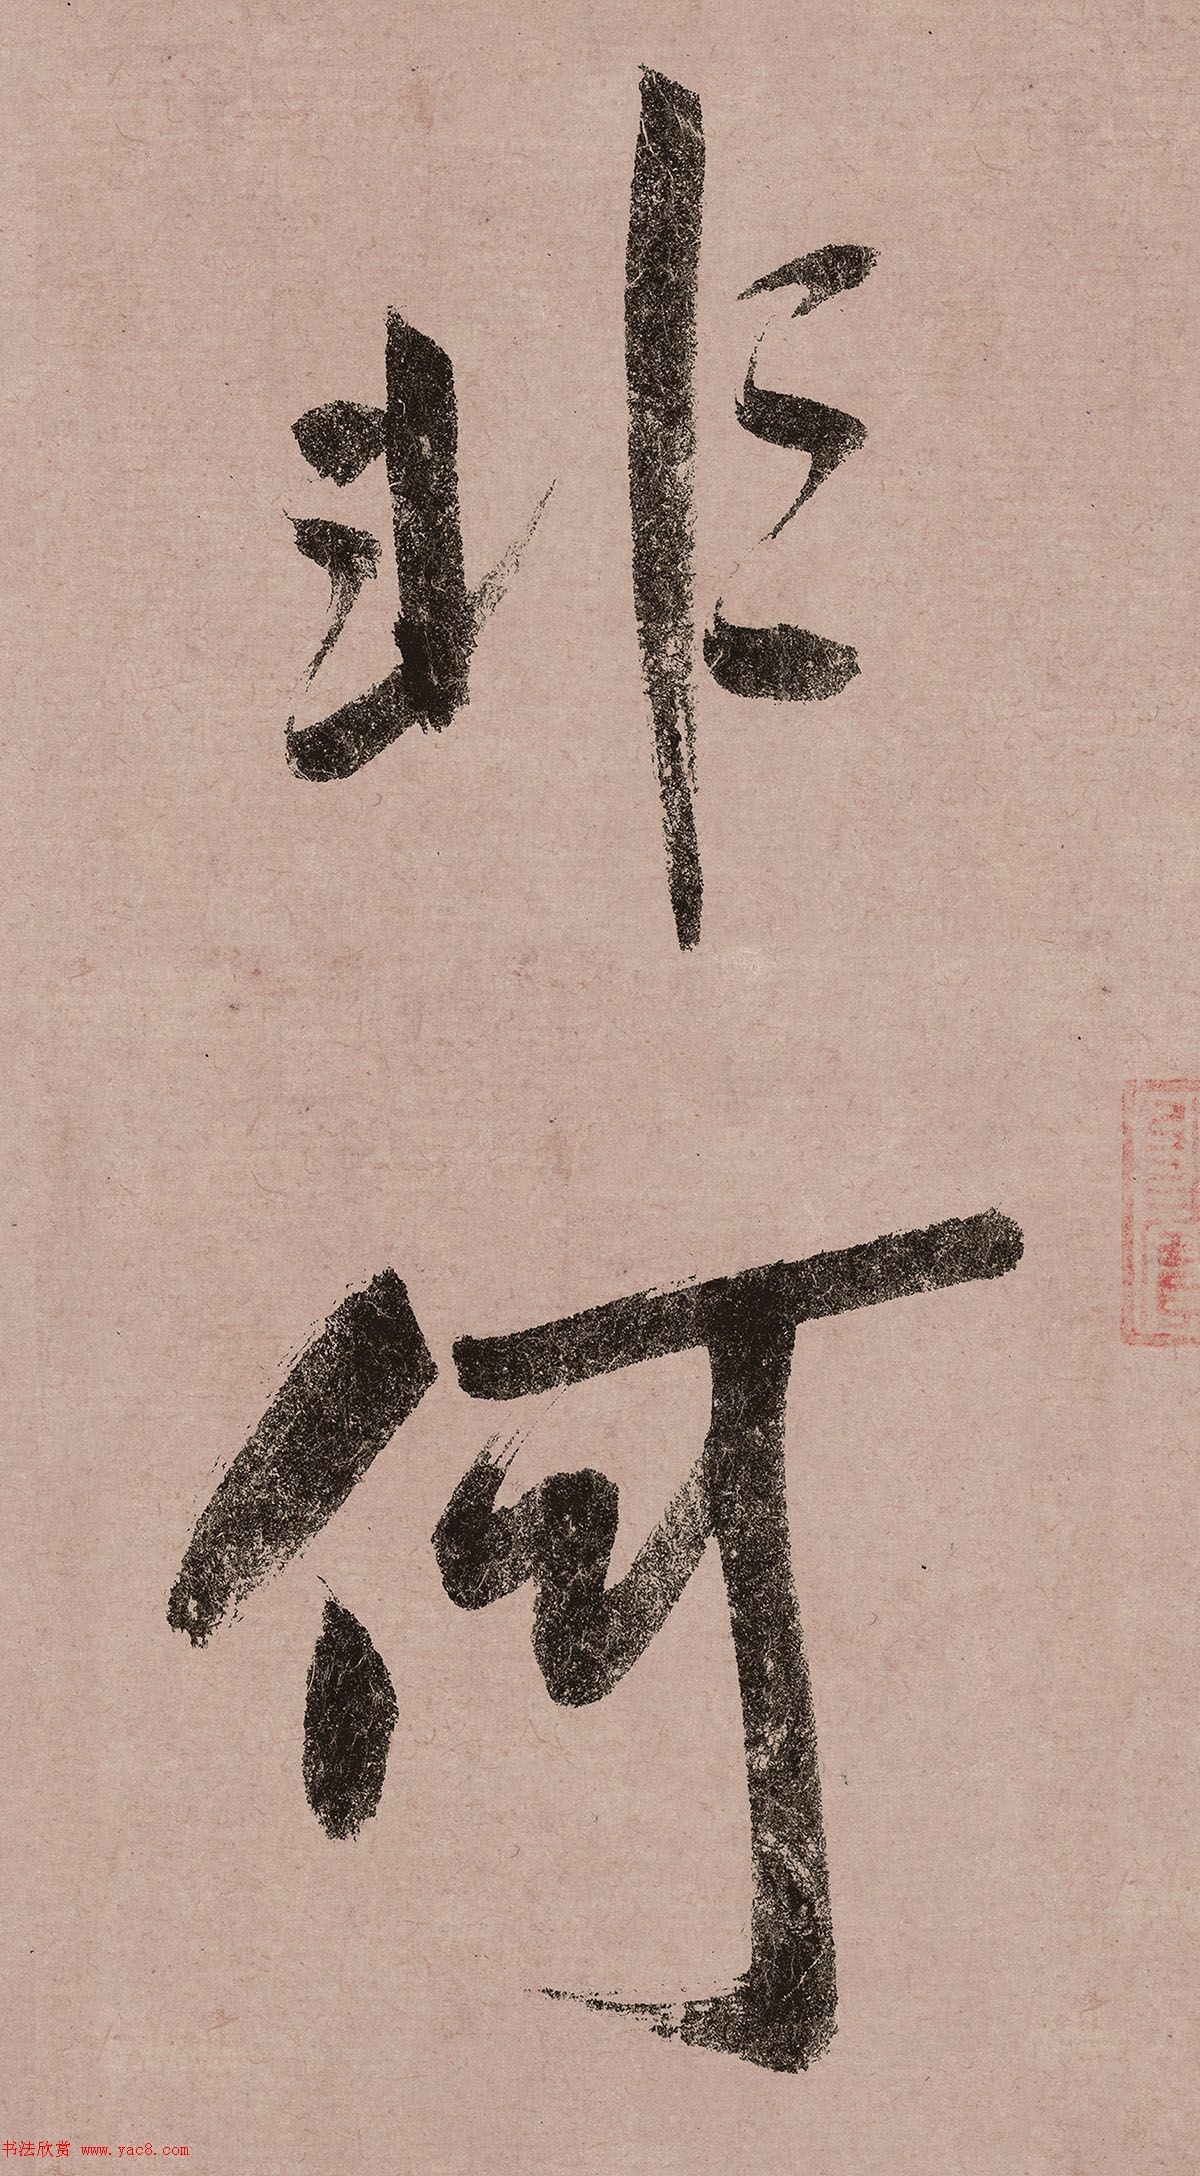 非何
书法欣赏 www.yac8.com